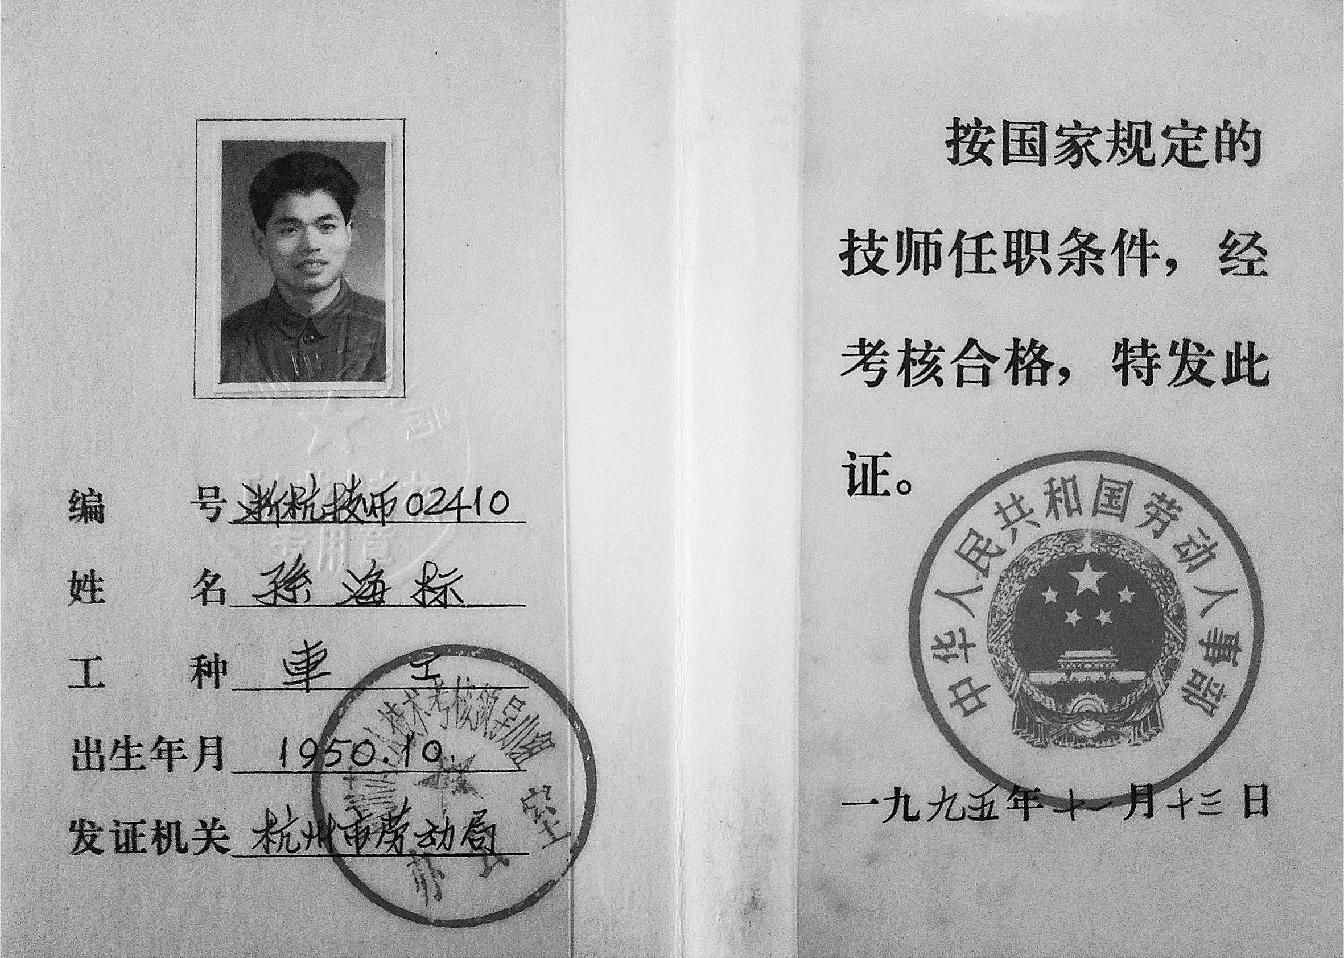 编号 浙杭技师02410
姓名 孫海标
工种 車工
出生年月 1950.10.
发证机关 杭州市劳动局
技术考核
办公室
专用章
按国家规定的
技师任职条件，经
考核合格，特发此
证。
中华人民共和国劳动人事部
一九九五年十一月十三日